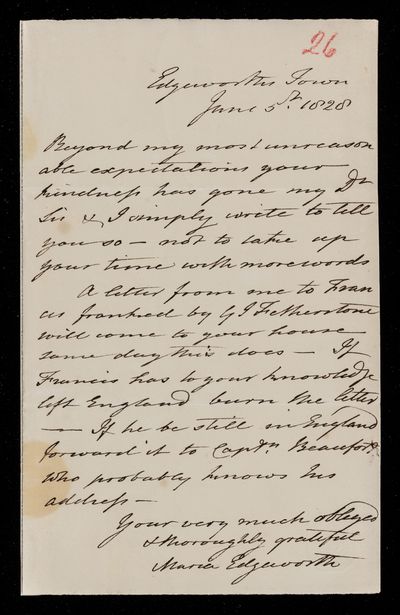 26
Edgeworths Town
June 5th. 1828
Beyond my most unreason
able expectations your
kindness has gone my Dr
Sir & I simply write to tell
you so — not to take up
your time with more words
A letter from me to Fran
cis franked by G J Fetherstone
will come to your house
same day this does — If
Francis has to your knowledge
left England burn the letter
— If he be still in England
forward it to Captn. Beaufort
who probably knows his
address —
Your very much obliged
& thoroughly grateful
Maria Edgeworth